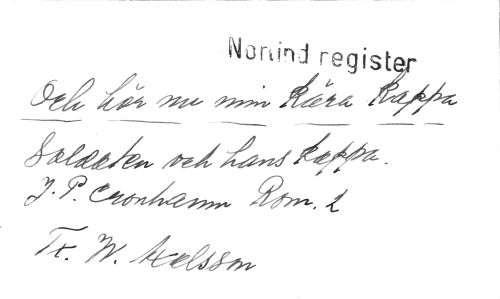 Norlind register
Och hör nu min kära kappa
Soldaten och hans kappa.
J. P. Cronhamn Rom. 2
Tr. W. Axelsson